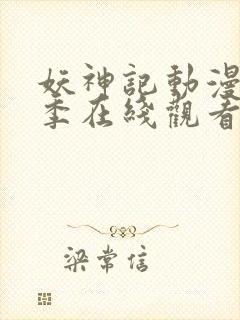 妖神記動漫
季在綫觀看
梁常信